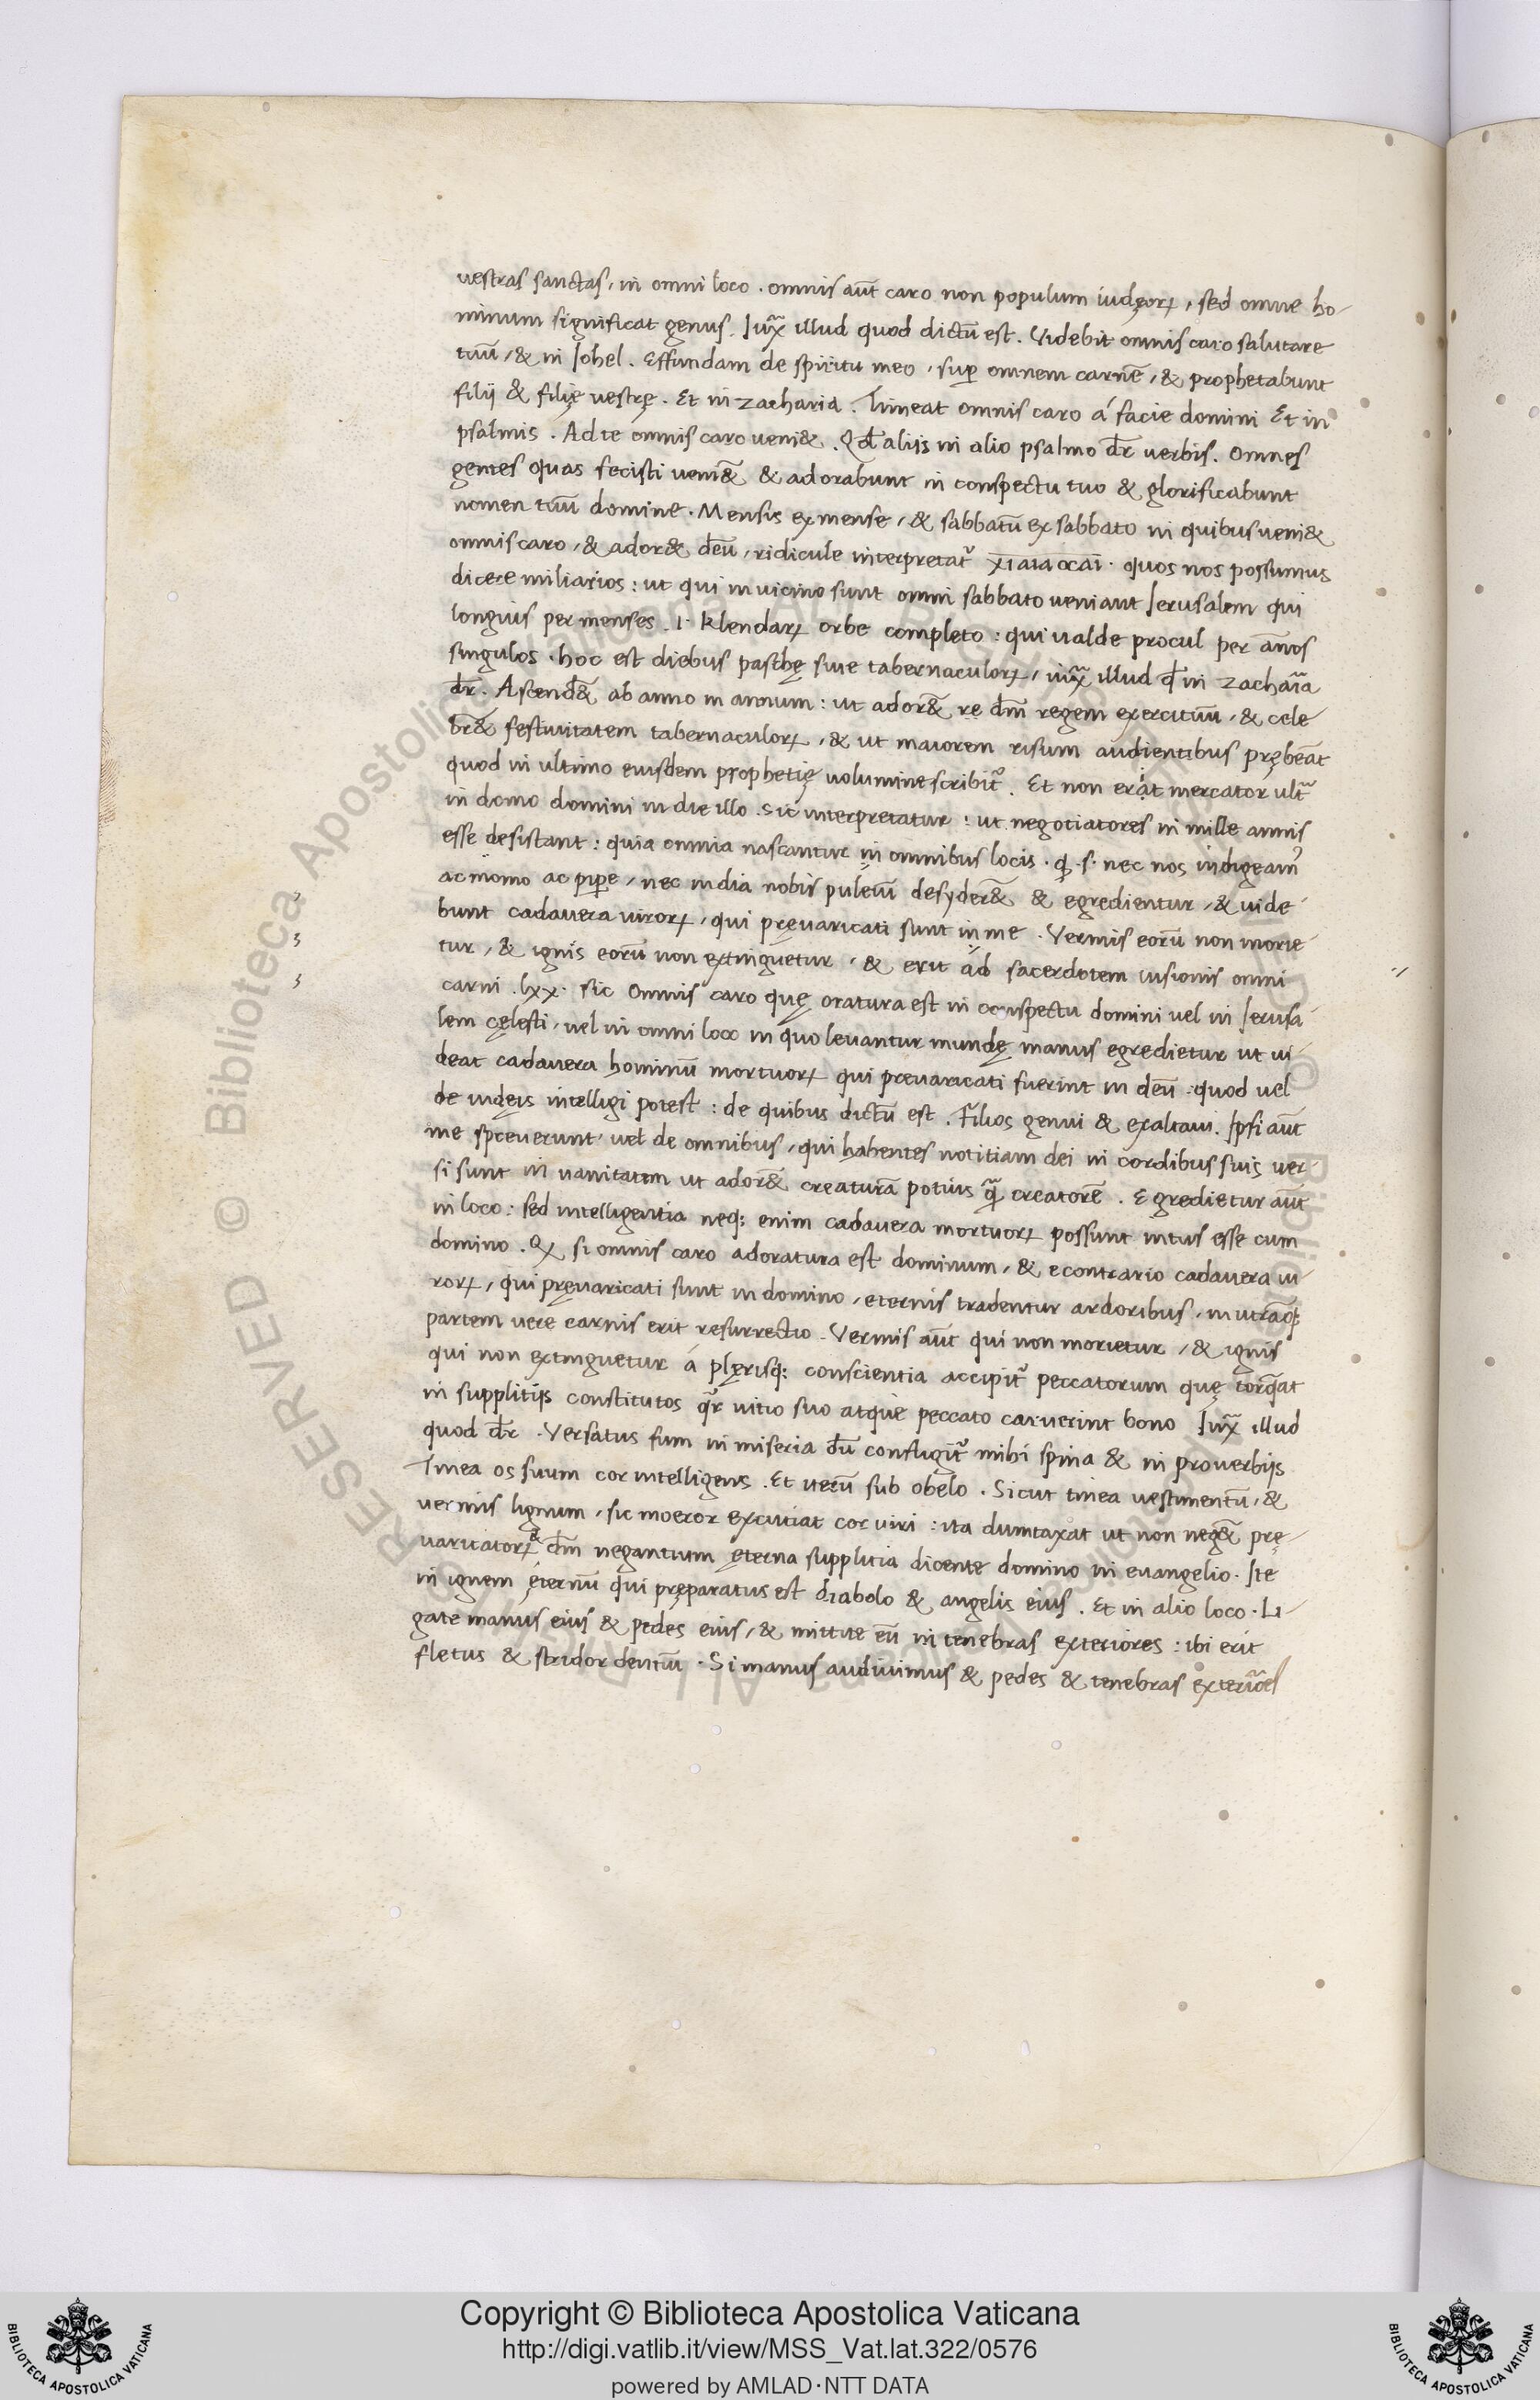 vestras sanctas, in omni loco . omnis aut̄ caro non populum iudęorꝝ, sed omne ho-
minum significat genus. Iux̄ illud quod dictū est. Videbit omnis caro salutare
tuū, & in Iohel. Effundam de spiritu meo, suꝑ omnem carnē, & prophetabunt
filij & filię vestrę. Et in zacharia. Timeat omnis caro á facie domini Et in
psalmis. Ad te omnis caro veni&. Qd̄ alijs in alio psalmo dr̄ verbis. Omnes
gentes quas fecisti veni&̄ & adorabunt in conspectu tuo & glorificabunt
nomen tuū domine. Mensis ex mense, & sabbatū ex sabbato in quibus veni&
omnis caro, & ador& deū, ridicule interpretat᷑ quos nos possumus
dicere miliarios: ut qui in vicino sunt omni sabbato veniant Ierusalem qui
longius per menses .i. klendarꝝ orbe completo: qui valde procul per ān̄os
singulos. hoc est diebus paschę sive tabernaculorꝝ, iux̄ illud qd̄ in zachar̄ia
dr̄. Ascend&̄ ab anno in annum: ut ador&̄ re dm̄ regem exercituū, & cele-
br&̄ festivitatem tabernaculorꝝ, & ut maiorem risum audientibus prębeāt
quod in ultimo eiusdem prophetię volumine scribit᷑. Et non erit mercator ult̄
in domo domini in die illo. sic interpretatur: ut negotiatores in mille annis
esse desistant: quia omnia nascantur in omnibus locis. q̨ .s. nec nos indigeam᷒
acmomo ac pipe, nec india nobis puleiū desyder& & egredientur, & vide-
bunt cadavera virorꝝ, qui prevaricati sunt in me. Vermis eorū non morie-
tur, & ignis eorū non extinguetur, & erit ad sacerdotem visionis omni
carni. lxx. sic Omnis caro quę oratura est in conspectu domini vel in Ierusa-
lem cęlesti, vel in omni loco in quo levantur mundę manus egredietur ut vi-
deat cadavera hominū mortuorꝝ qui prevaricati fuerint in deū. quod vel
de iudęis intelligi potest: de quibus dictū est. Filios genui & exaltavi. Ipsi aut̄
me spreverunt, vel de omnibus, qui habentes notitiam dei in cordibus suis ver-
si sunt in vanitatem ut ador&̄ creaturā potius q̄ creatorē. Egredietur aut̄
in loco: sed intelligentia neq; enim cadavera mortuorꝝ possunt intus esse cum
domino. Qꝫ si omnis caro adoratura est dominum, & econtrario cadavera vi-
rorꝝ, qui pręvaricati sunt in domino, eternis tradentur ardoribus, in utrāq;
partem vere carnis erit resurrectio. Vermis aut̄ qui non morietur, & ignis
qui non extinguetur á plęrisq; conscientia accipit᷑ peccatorum quę torq̄at
in supplitijs constitutos qr̄ vitio suo atque peccato caruerint bono Iux̄ illud
quod dr̄. Versatus sum in miseria dū confligit᷑ mihi spina & in proverbijs
Tinea os suum cor intelligens. Et verū sub obelo. Sicut tinea vestimentū, &
vermis lignum, sic moeror excruciat cor viri: ita dumtaxat ut non neg&̄ prę-
varicatorꝝ & dm̄ negantium ęterna supplitia dicente domino in evangelio. Ite
in ignem ęternū qui pręparatus est diabolo & angelis eius. Et in alio loco. Li-
gate manus eius & pedes eius, & mittite eū in tenebras exteriores: ibi erit
fletus & stridor dentiū. Si manus audivimus & pedes & tenebras exter̄iores
Copyright © Biblioteca Apostolica Vaticana
http://digi.vatlib.it/view/MSS_Vat.lat.322/0576
powered by AMLAD·NTT DATA